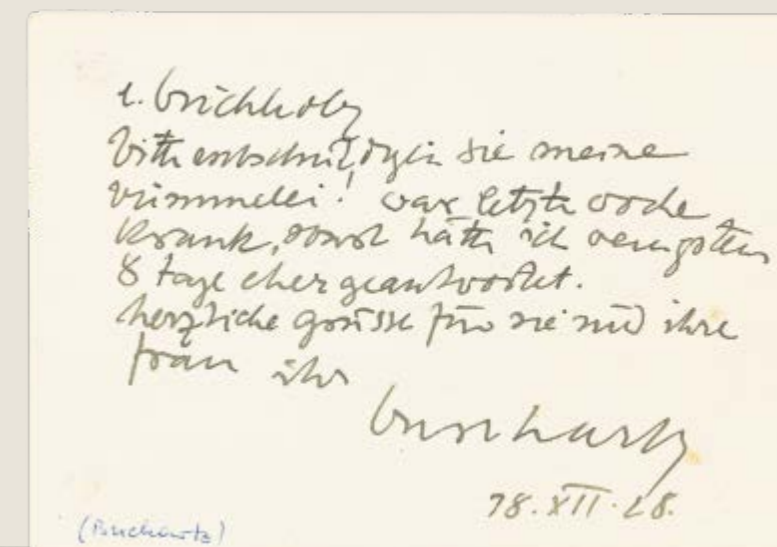 l. buchholz
bitte entschuldigen sie meine
bummelei! war letzte woche
krank, sonst hätte ich wenigstens
8 tage eher geantwortet.
herzliche grüsse für sie und ihre
frau ihr
burchartz
18.XII.28.
(Burchartz)